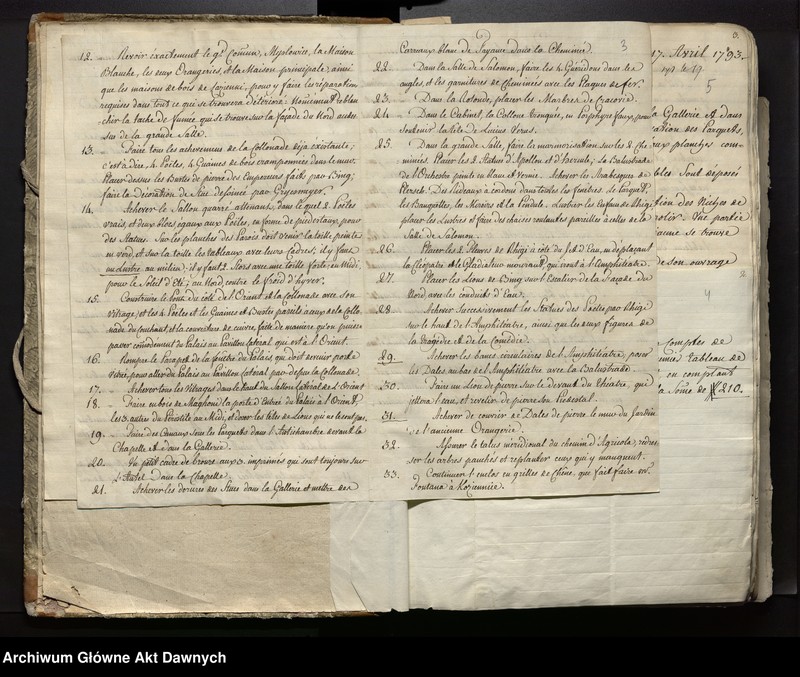 12. Revoir exactement le gd Comun, Myslowice, la Maison
Blanche, les deux Orangeries, et la Maison principale, ainsi
que les maisons de bois de Lazienki, pour y faire les réparations
requises dans tout ce qui se trouvera détérioré. Nomément reblan-
chir la tache de fumée qui se trouve sur la façade du Nord au des-
sus de la grande Salle.
13. Faire tous les achevemens de la Collonade déja éxistante;
c'est à dire, 4 Poëles, 4 Guaines de bois cramponnées dans le mur.
Placer dessus les Bustes de pierre des Empereurs faits par Bing;
faire la décoration de Stuc dessinée par Grysemeyer.
14. Achever le Sallon quarré attenant, dans le quel 2 Poëles
vrais, et deux blocs egaux aux Poëles, en forme de piedestaux pour
des Statues. Sur les planches des Parois doit venir la toille peinte
en verd, et sur la toille les tableaux avec leurs Cadres; il y faut
un Lustre au milieu; il y faut 2 Stors avec une toille forte; au Midi
pour le Soleil d'Eté; au Nord contre le froid d'hyver.
15. Construire le bout du coté de l'Orient et la Collonade avec son
vitrage; et les 4 Poëles et les Guaines et Bustes pareils à ceux de la Collo-
nade du couchant et la couverture de cuivre, faite de manière qu'on puisse
passer comodement du Palais au Pavillon Lateral qui est à l'Orient.
16. Rompre le Parapet de la fenêtre du Palais qui doit servir porte
vitrée, pour aller du Palais au Pavillon Lateral par dessus la Collonade.
17. Achever tous les Vitrages dans le haut du Sallon Lateral de l'Orient
18. Faire en bois de Maghoni la porte d'Entrée du Palais à l'Orient,
les 3 autres du Péristile au Midi, et dorer les têtes de Lions qui ne le sont pas.
19. Faire des Canaux sous les Parquets dans l'Antichambre devant la
Chapelle et dans la Gallerie.
20. Un petit cadre de bronze aux 3 imprimés qui sont toujours sur
l'Autel dans la Chapelle.
21. Achever les dorures des Stucs dans la Gallerie et mettre des
3
Carreaux blanc de Fayance dans la Cheminée.
22. Dans la Salle de Salomon, faire les 4 Guéridons dans les
angles, et les garnitures de Cheminées avec les Plaques de fer.
23. Dans la Rotonde, placer les Marbres de Cracovie.
24. Dans le Cabinet, la Collone tronquée, en Porphyre faux, pour
soutenir la tête de Lucius Verus.
25. Dans la grande Salle, faire la marmorisation sur les 2 Che-
minées. Placer les 2 Statues d'Apollon et d'Hercule; La Balustrade
de l'Orchestre peinte en blanc et Vernie. Achever les Arabesques de
Plersch. Des Rideaux à cordons dans toutes les fenêtres. Le Parquet;
les Banquettes, les Miroirs et la Pendule. Lustrer les Enfans de Rhigi
placer les Lustres et faire des chaises roulantes pareilles à celles de la
Salle de Salomon.
26. Placer les 2 Fleuves de Rhigi à côté du Jet d'Eau, en déplaçant
la Cléopatre et le Gladiateur mourant, qui iront à l'Amphitéatre.
27. Placer les Lions de Bing sur l'Escalier de la Façade du
Nord avec les conduits d'Eau.
28. Achever Successivement les Statues des Poëtes par Rhigi
sur le haut de l'Amphitéatre, ainsi que les deux figures de
la Tragédie et de la Comédie.
29. Achever les bancs circulaires de l'Amphitéatre, poser
les Dales au bas de l'Amphitéatre avec la Balustrade.
30. Faire un Lion de pierre sur le devant du Théatre, qui
jettera l'eau, et revetir de pierre son Piedestal.
31. Achever de couvrir de Dales de pierre le mur du Jardin
de l'ancienne Orangerie.
32. Assurer le talus méridional du chemin d'Agricola, rédres-
ser les arbres panchés et replanter ceux qui y manquent.
33. Continuer l'enclos en grilles de Chêne, que fait faire Mr
Fontana à Kozienniee.
17. Avril 1793.
5
la Gallerie et dans
des Parquets,
planches com-
Tout déposé
des Niches de
Une partie
se trouve
de son ouvrage
4
Comptes de
Tableau de
en comptant
la Some de #210.
Archiwum Główne Akt Dawnych